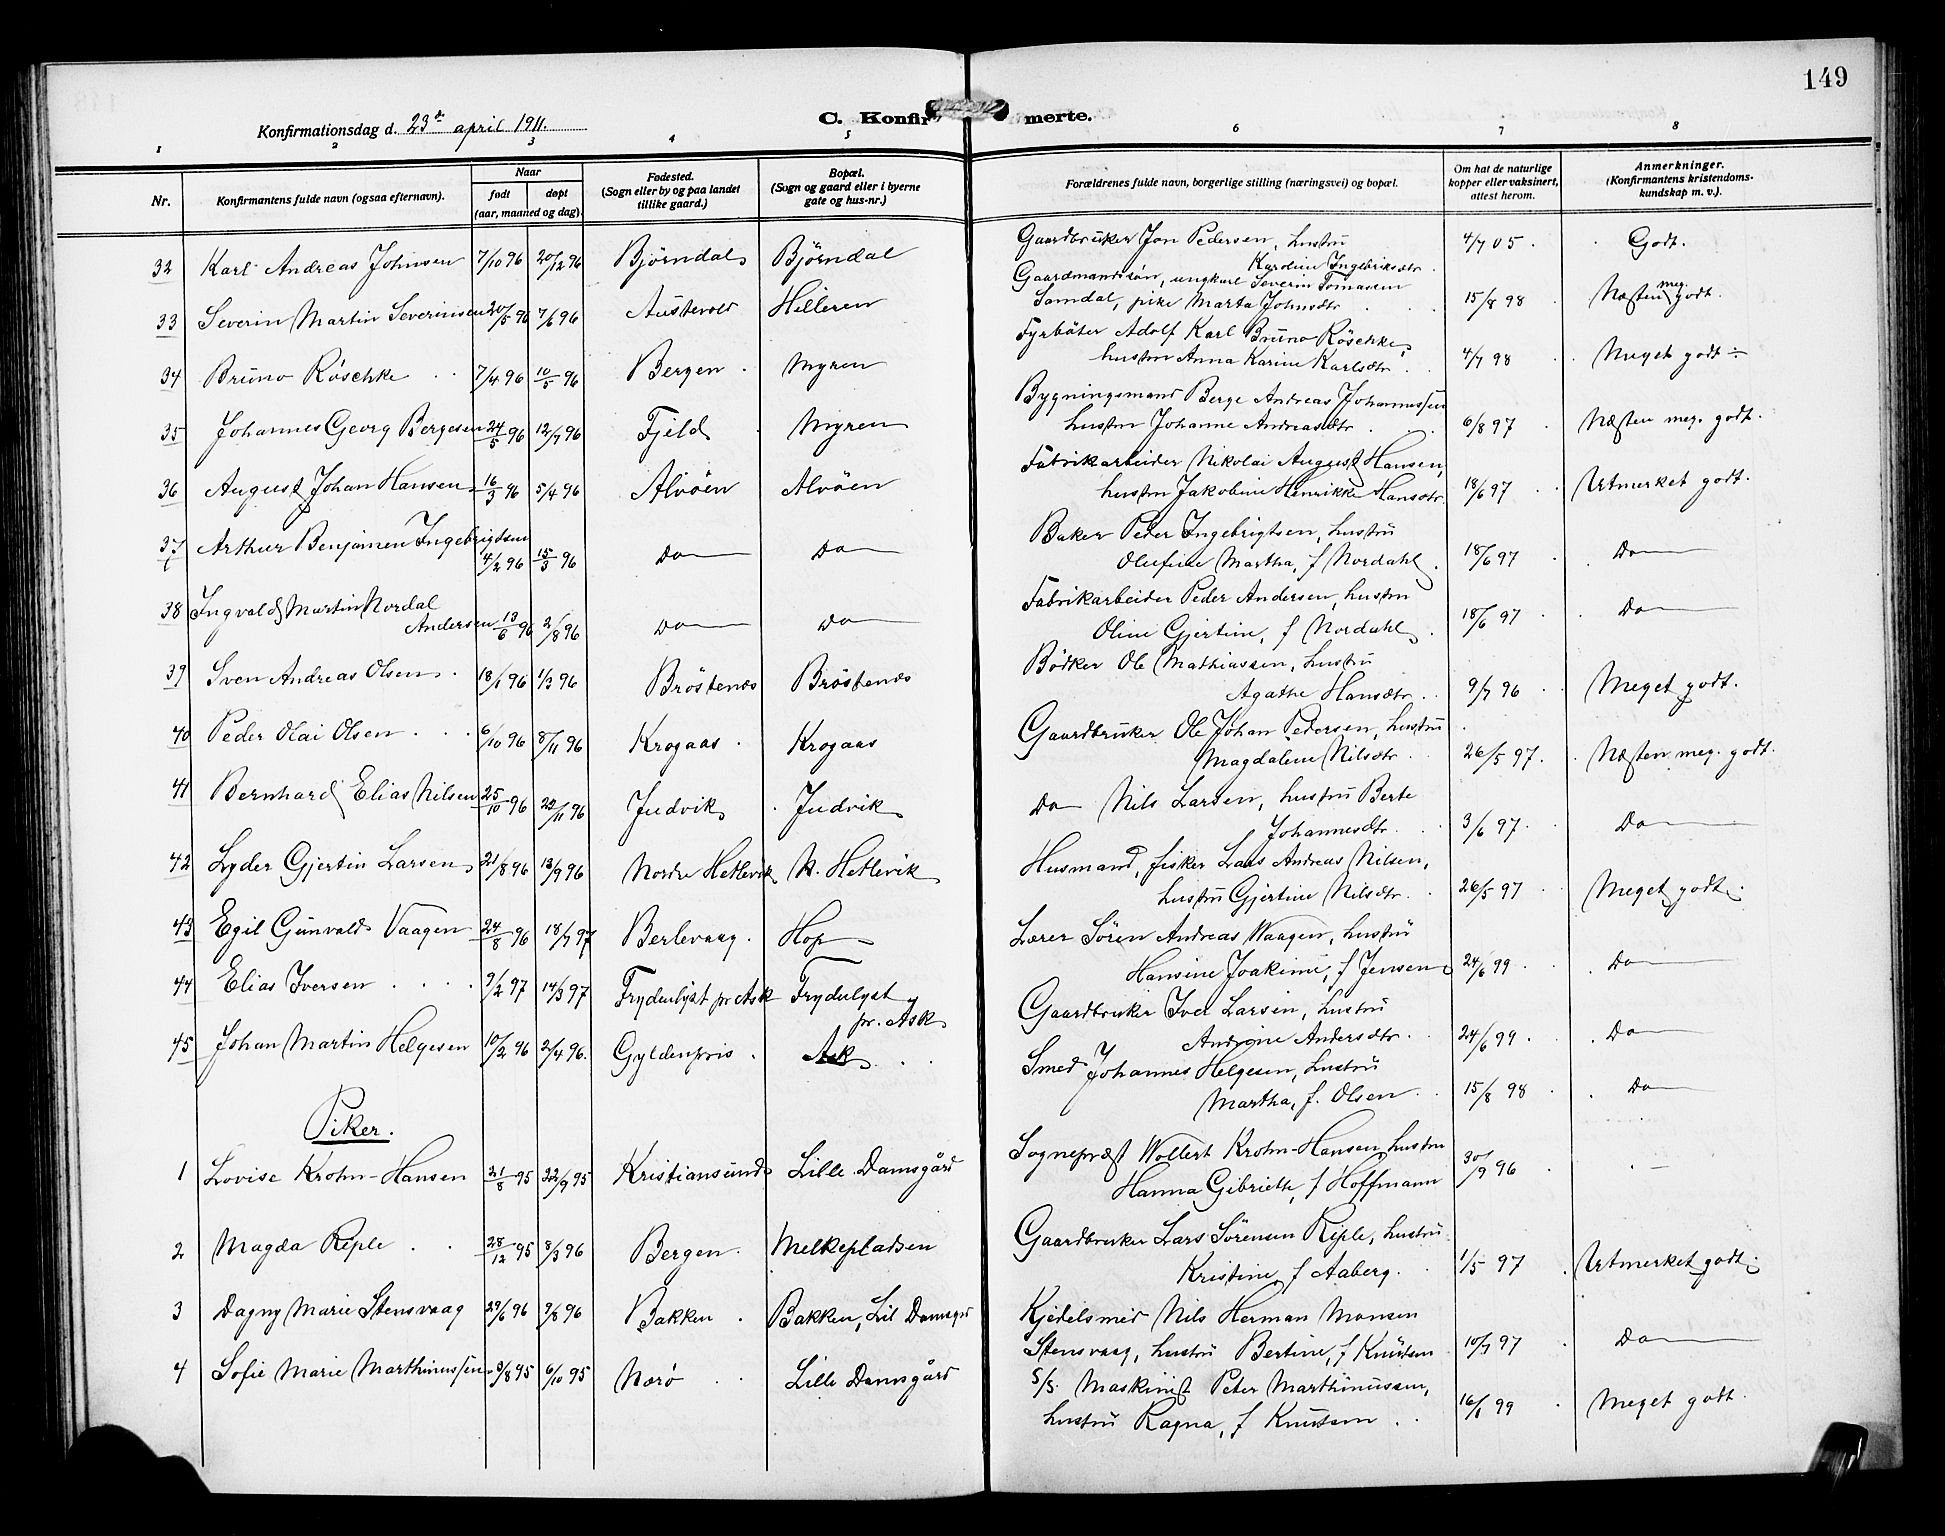 149
Konfirmationsdag d. 23de april 1911.
C. Konfirmerte.
1 2 3 4 5 6 7 8
Nr. Konfirmantens fulde navn (ogsaa efternavn). Naar født døpt (aar, maaned og dag). Fødested. (Sogn eller by og paa landet tillike gaard.) Bopæl. (Sogn og gaard eller i byerne gate og hus-nr.) Forældrenes fulde navn, borgerlige stilling (næringsvei) og bopæl. Om hat de naturlige kopper eller vaksinert, attest herom. Anmerkninger. (Konfirmantens kristendomskundskap m. v.).
32 Karl Andreas Johnsen 7/10 96 20/12 96 Björndal Björndal Gaardbruker Jon Pedersen, hustru Karoline Ingebriksdtr. 4/7 05. Godt.
33 Severin Martin Severinsen 20/5 96 7/6 96 Austevold Hilleren Gaardmandssön, ungkarl Severin Tomassen Samdal, pike Marta Johnsdtr 15/8 98 Næsten meg. godt.
34 Bruno Röschke 7/4 96 10/5 96 Bergen Myren Fyrbøter Adolf Karl Bruno Röschke, hustru Anna Karine Karlsdtr. 4/7 98 Meget godt ÷
35 Johannes Georg Bergesen 24/5 96 12/7 96 Fjeld Myren Bygningsmand Berge Andreas Johannessen hustru Johanne Andreasdtr. 6/8 97 Næsten meg. godt.
36 August Johan Hansen 16/3 96 5/4 96 Alvöen Alvöen Fabrikarbeider Nikolai August Hansen, hustru Jakobine Henrikke Hansdtr. 18/6 97 Utmerket godt.
37 Arthur Benjamen Ingebrigtsen 4/2 96 15/3 96 Do Do Baker Peder Ingebrigtsen, hustru Olufine Martha, f Nordahl. 18/6 97 Do
38 Ingvald Martin Nordal Andersen 13/6 96 2/8 96 Do Do Fabrikarbeider Peder Andersen, hustru Oline Gjertine, f Nordahl. 18/6 97 Do
39 Sven Andreas Olsen 18/1 96 1/3 96 Bröstenes Bröstenes Bödker Ole Mathiassen, hustru Agathe Hansdtr. 9/7 96 Meget godt.
40 Peder Olai Olsen 6/10 96 8/11 96 Krogaas Krogaas Gaardbruker Ole Johan Pedersen, hustru Magdalene Nilsdtr 26/5 97. Næsten meg. godt.
41 Bernhard Elias Nilsen 25/10 96 22/11 96 Judvik Judvik Do Nils Larsen, hustru Berte Johannesdtr. 3/6 97. Do
42 Lyder Gjertin Larsen 21/8 96 13/9 96 Nordre Hetlevik N. Hetlevik Husmand, fisker Lars Andreas Nilsen, hustru Gjertine Nilsdtr. 26/5 97 Meget godt.
43 Egil Gunvald Vaagen 24/8 96 18/7 97 Berlevaag. Hop Lærer Sören Andreas Waagen, hustru Hansine Joakime, f Jensen 24/6 99. Do
44 Elias Iversen 9/2 97 14/3 97 Frydenlyst pr Ask Frydenlyst pr. Ask Gaardbruker Iver Larsen, hustru Andrine Andersdtr. 24/6 99. Do
45 Johan Martin Helgesen 10/2 96 2/4 96. Gyldenpris Ask Smed Johannes Helgesen, hustru Martha, f. Olsen 15/8 98 Do
Piker.
1 Lovise Krohn-Hansen 21/8 95 22/9 95 Kristiansund Lille Damsgård Sogneprest Wollert Krohn-Hansen, hustru Hanna Gibriette, f Hoffmann 30/9 96 –
2 Magda Riple 28/12 95 8/3 96 Bergen. Melkepladsen Gaardbruker Lars Sörensen Riple, hustru Kristine, f Aaberg. 1/5 97 Utmerket godt.
3 Dagny Marie Stensvaag 29/6 96 9/8 96 Bakken Bakken, Lil Damsgrd Kjedelsmed Nils Herman Monsen Stensvaag, hustru Bertine, f Knutsen 10/7 97 Do
4 Sofie Marie Marthinussen 9/8 95 6/10 95 Nærö Lille Damsgård S/S. Maskinist Peter Marthinussen, hustru Ragna, f Knutsen 16/6 99 Meget godt